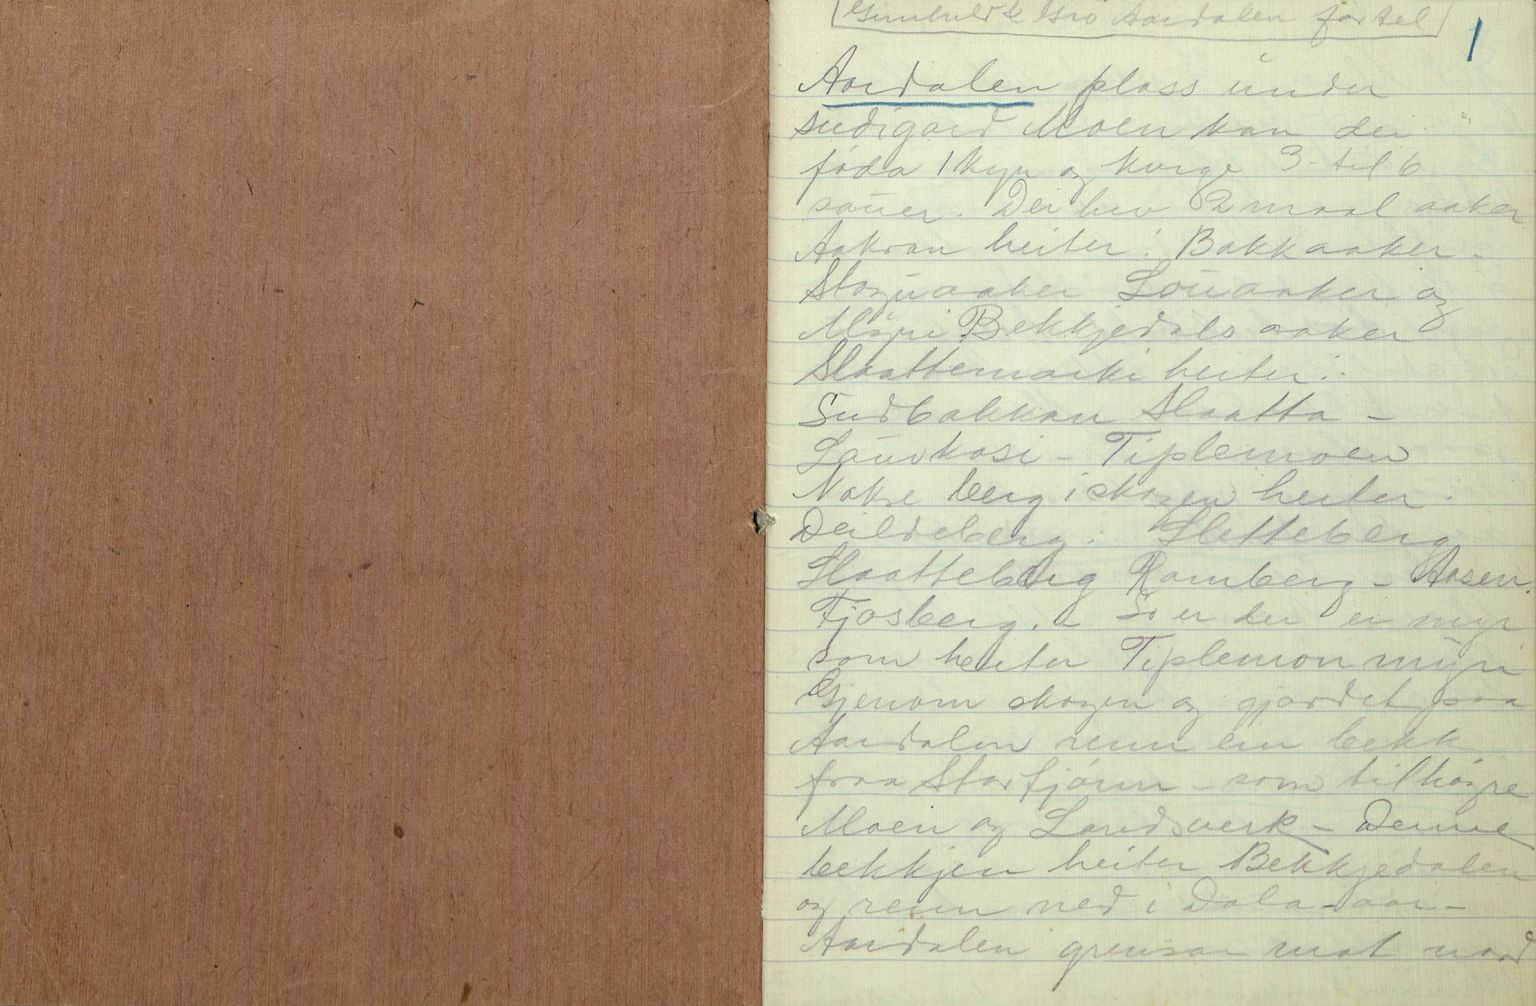 Gro Aardalen fortel
1
Aardalen plass under
sudigard Moen kan dei
föda 1 kyr og kvige 3 til 6
sauer. Dei hev 2 maal aaker
Aakran heiter: Bakkaaker -
Stoguaaker Löuaaker og
Myri Bekkjedals aaker
Slaattemarki heiter:
Sudbakkan Slaatta -
Lauvkasi - Tiplemoen
Nokre berg i skogen heiter:
Deildeberg. Sletteberg
Slaatteberg Ramberg - Aasen
Fjosberg. - So er der ei myr
som heiter Tiplemonmyri
Gjenom skogen og gjordet paa
Aardalen renn ein bekk
fraa Storfjönn - som tilhöyre
Moen og Landsverk - Denne
bekkjen heiter Bekkjedalen
og renn ned i Dala-aa -
Aardalen grensar mot nord